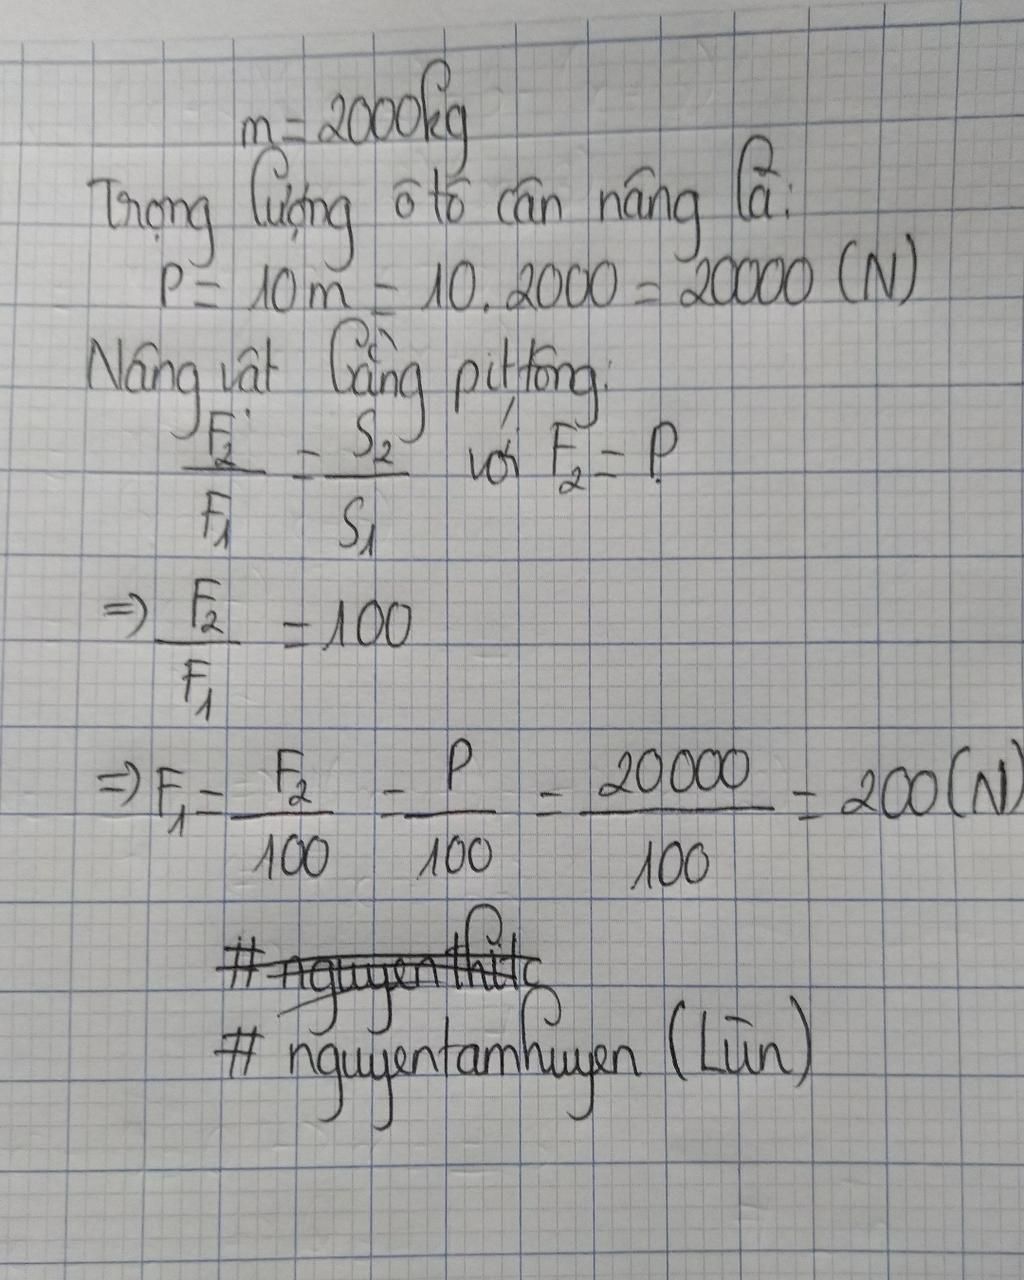 m = 2000kg
Trọng lượng ô tô cần nâng là:
P = 10m = 10. 2000 = 20000 (N)
Nâng vật bằng pít tông:
F₂/F₁ = S₂/S₁ với F₂ = P
=> F₂/F₁ = 100
=> F₁ = F₂/100 = P/100 = 20000/100 = 200 (N)
# nguyentamhuyen (Lùn)